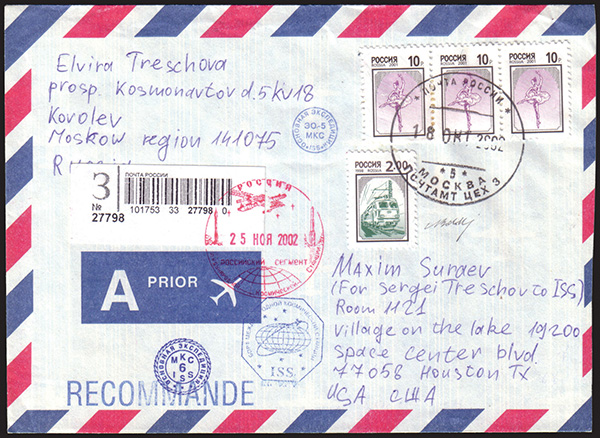 Elvira Treschova
prosp. Kosmonavtov d.5 kv18
Korolev
Moskow region 141075
Russia
РОССИЯ 10р
ROSSIJA 2001
РОССИЯ 10р
ROSSIJA 2001
РОССИЯ 10р
ROSSIJA 2001
* ПОЧТА РОССИИ *
18 ОКТ 2002
* 5 *
МОСКВА
ПОЧТАМТ ЦЕХ 3
РОССИЯ 2.00
ОСНОВНАЯ ЭКСПЕДИЦИЯ
30-5
МКС
ISS
З
№
27798
ПОЧТА РОССИИ
101753 33 27798 0
РОССИЯ
25 НОЯ 2002
РОССИЙСКИЙ СЕГМЕНТ
A PRIOR
ISS
ОСНОВНАЯ ЭКСПЕДИЦИЯ
МКС
6
ISS
RECOMMANDE
Maxim Suraev
(For Sergei Treschov to ISS)
Room 1121
village on the lake 19200
space center blvd
77058 Houston Tx
USA США